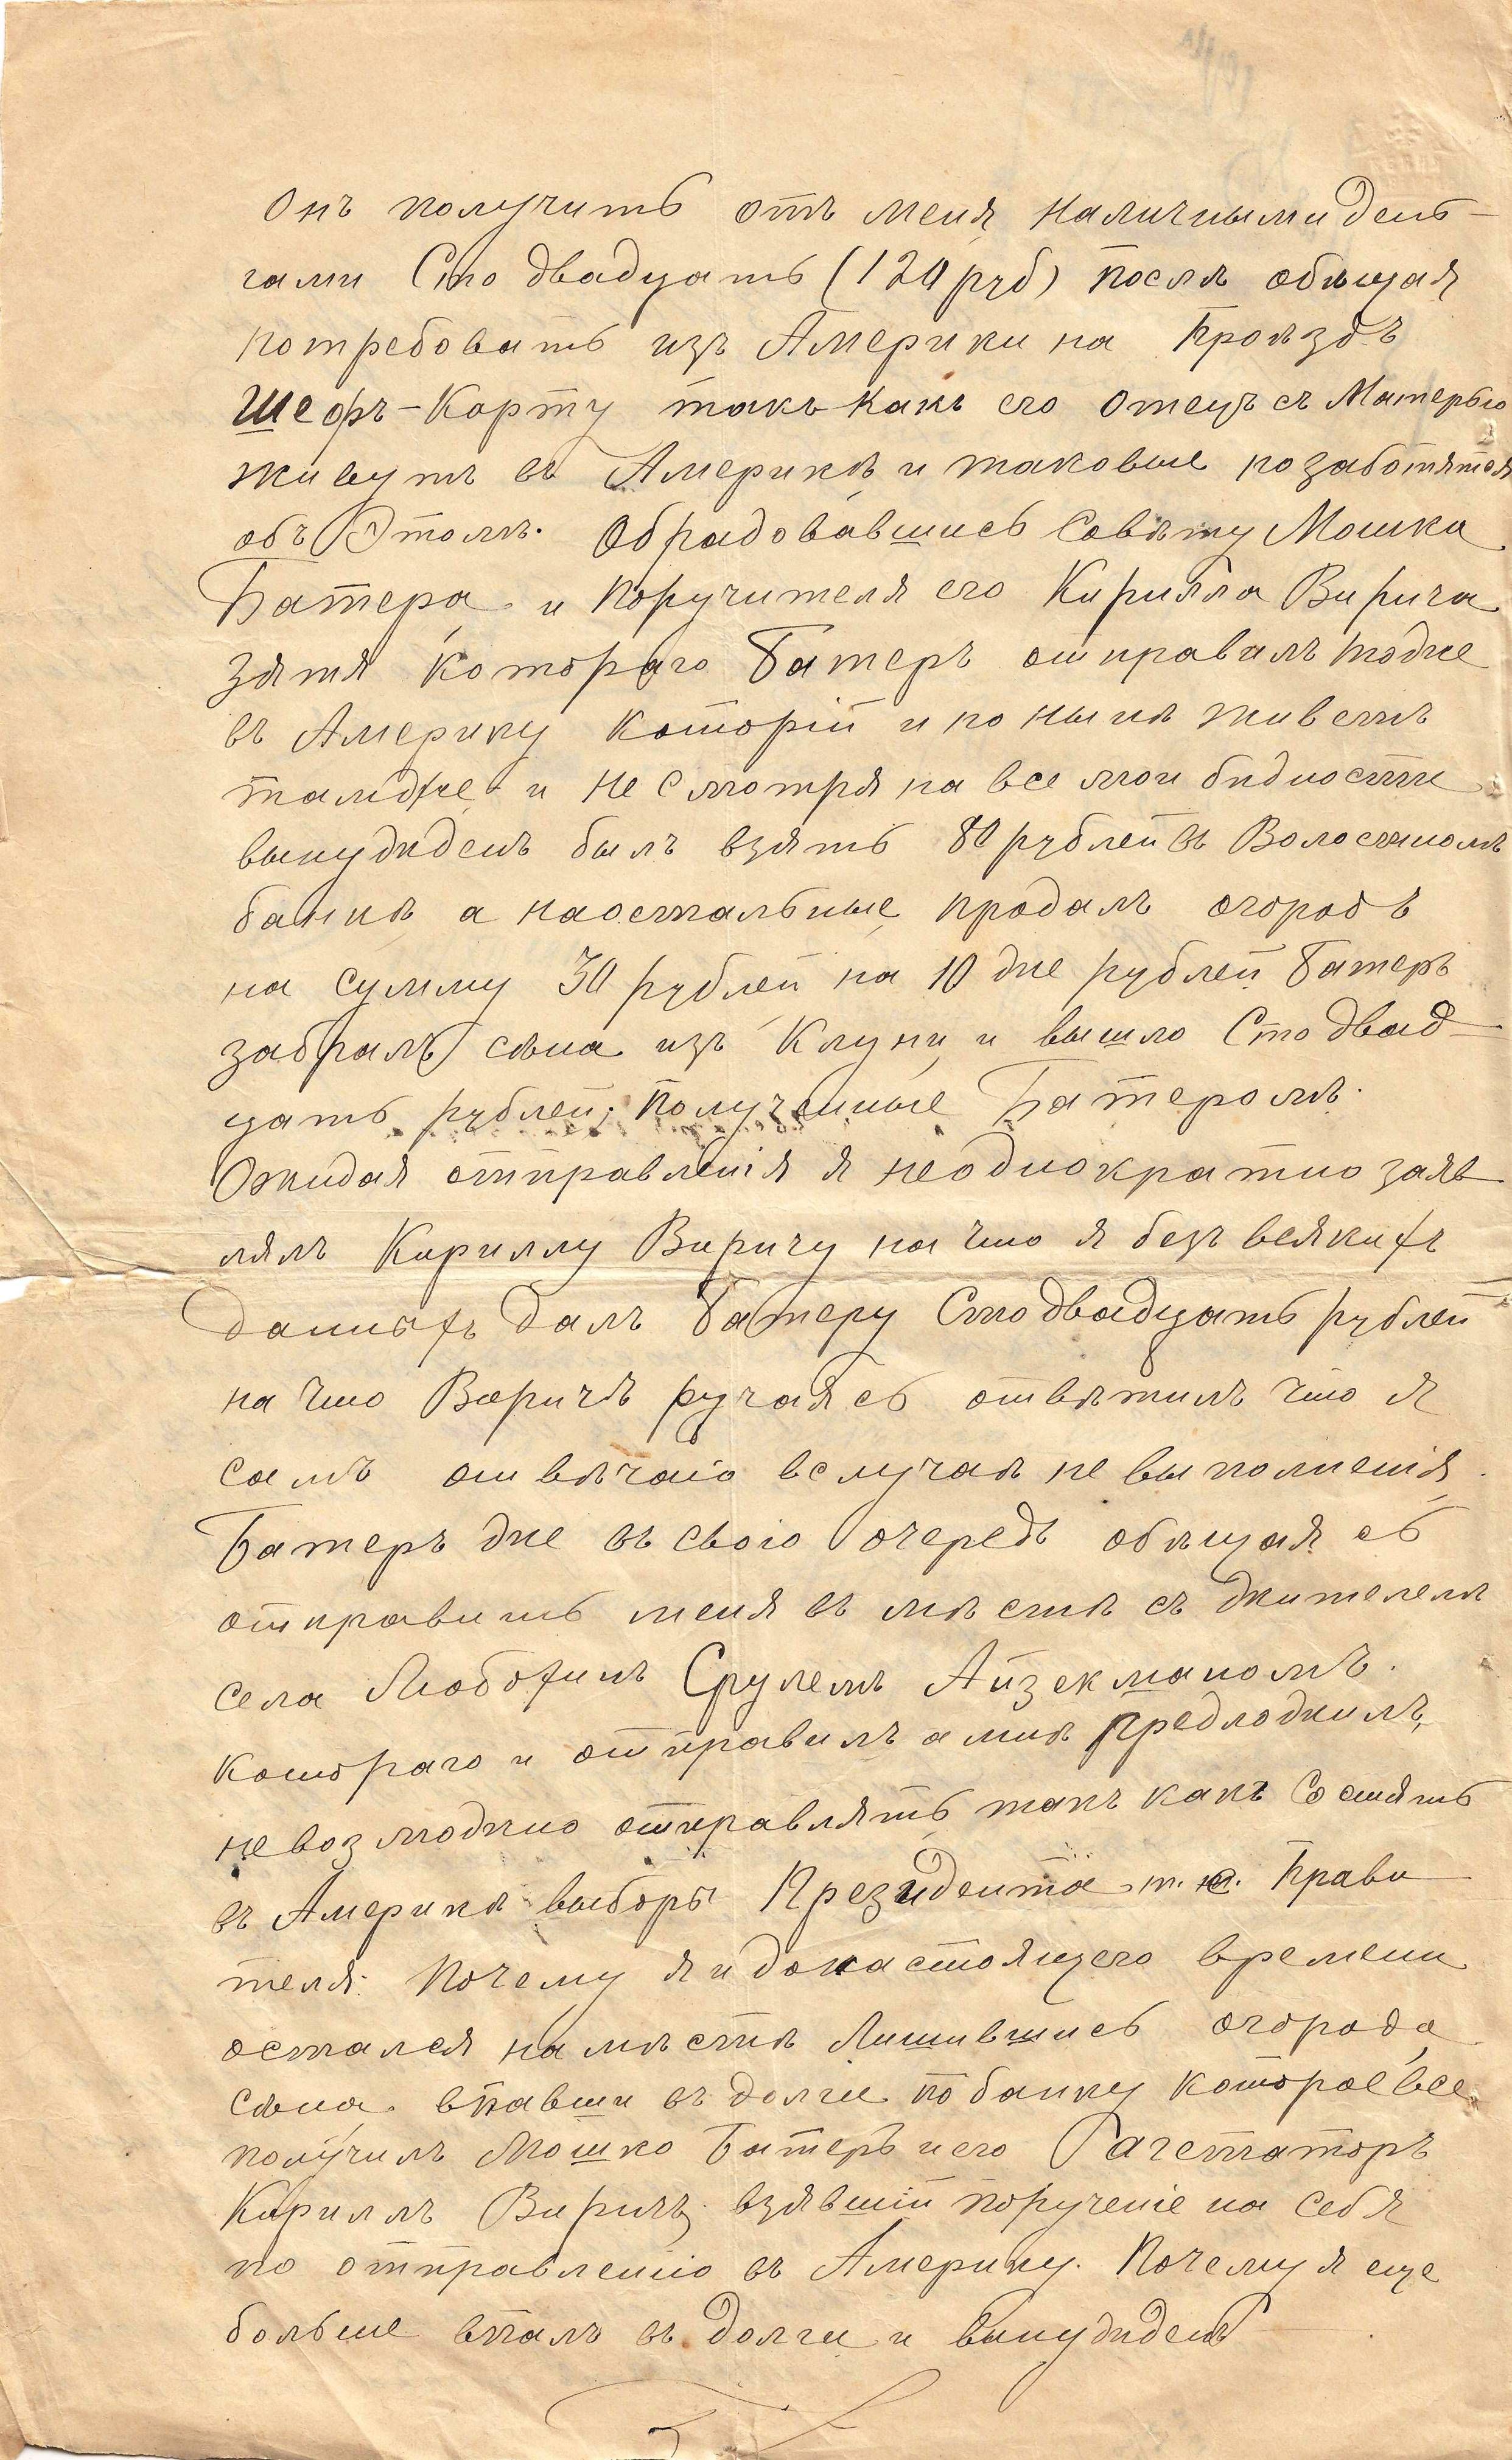 Онъ получитъ отъ меня наличными день-
гами Сто двадцать (120 руб) послѣ обѣщая
потребовать изъ Америки на Проѣздъ
Шефъ-Карту такъ какъ его отецъ съ Матерью
живутъ въ Америкѣ и таковые позаботятся
объ Этомъ. Обрадовавшись Совѣту Мошка
Батера и Поручителя его Кирилла Вирича
зятя котораго Батеръ отправилъ тодже
въ Америку которій и по нынѣ живетъ
тамдже и не смотря на все мои бѣдности
вынудженъ былъ взять 80 рублей въ Волостномъ
банкѣ а наостальные продалъ огородъ
на сумму 30 рублей на 10 дже рублей Батеръ
забралъ сѣна изъ Клуни и вышло Сто двад-
цать рублей; Полученные Батеромъ.
Ожидая отправленія я неоднократно заяв-
лялъ Кириллу Виричу на что я безъ всякихъ
данныхъ далъ Батеру Сто двадцать рублей
на что Виричъ ручаясь отвѣтилъ что я
самъ отвѣчаю вслучаѣ не выполненія.
Батеръ дже въ свою очередь обѣщаясь
отправить меня въ мѣстѣ съ жителемъ
села Любохинъ Срулемъ Айзекманомъ.
котораго и отправилъ а мнѣ предложилъ,
невозможно отправлять такъ какъ Состятъ
въ Америкѣ выборы Президента т. е. Прави-
теля. Почему я и донастоящего времени
остался на мѣстѣ Лишившись огорода
сѣна впавши въ долги по банку которое все
получилъ Мошко Батеръ и его Агетаторъ
Кириллъ Виричъ взявшій порученіе на себя
по отправленію въ Америку. Почему я еще
больше впалъ въ долги и вынудженъ